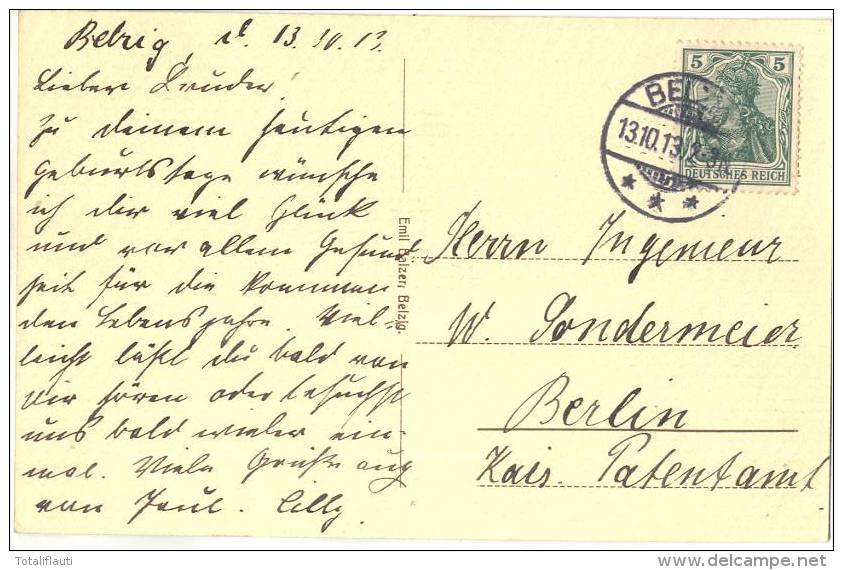 Belzig, d. 13.10.13.
Lieber Bruder!
Zu deinem heutigen
Geburtstage wünsche
ich dir viel Glück
und vor allem Gesund
heit für die kommen
den Lebensjahre. Viel-
leicht läßt du bald von
dir hören oder besuchst
uns bald wieder ein-
mal. Viele Grüße auch
von Paul. Cilly.
Emil Belzig.
5 5
DEUTSCHES REICH
BELZIG
13.10.13. 2-3N
Herrn Ingenieur
W. Sondermeier
Berlin
Kais. Patentamt
Totaliflauti
www.delcampe.net